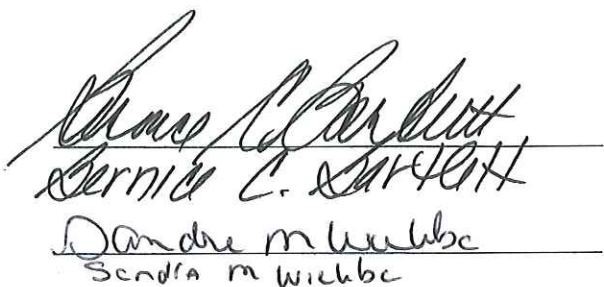 Bernice C. Bartlett
Bernice C. Bartlett
Sandra M
Sandra M